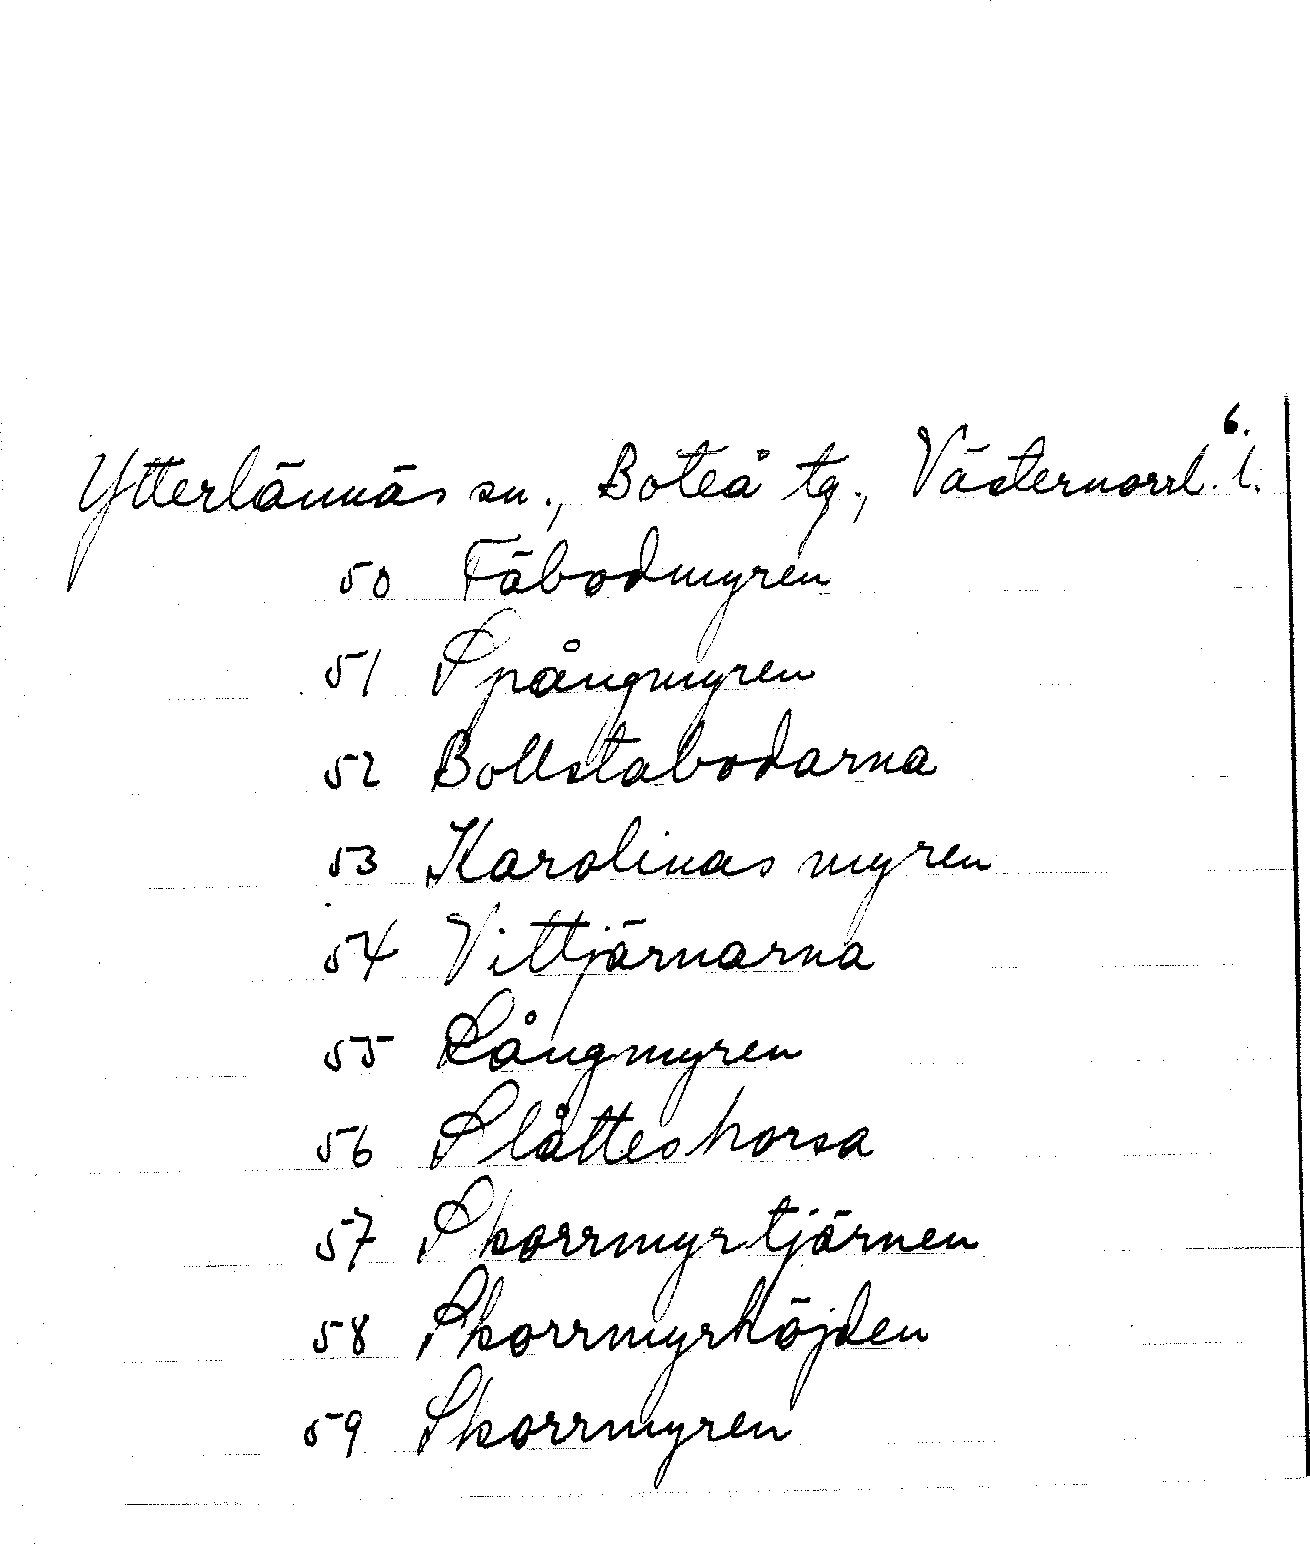 6.
Ytterlännäs sn., Boteå tg., Västernorrl. l.
50 Fäbodmyren
51 Spångmyren
52 Bollstabodarna
53 Karolinas myren
54 Vittjärnarna
55 Långmyren
56 Slåtteshorsa
57 Skorrmyrtjärnen
58 Skorrmyrhöjden
59 Skorrmyren